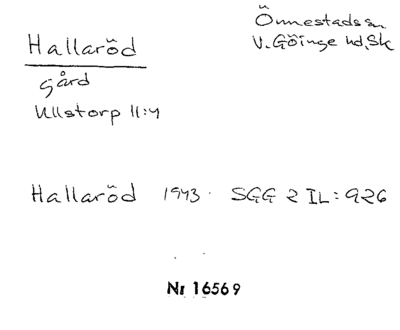 Hallaröd
Önnestads sn
V. Göinge hd, Sk
gård
Ullstorp 11:4
Hallaröd 1943 SGG 2 IL: 926
Nr 16569